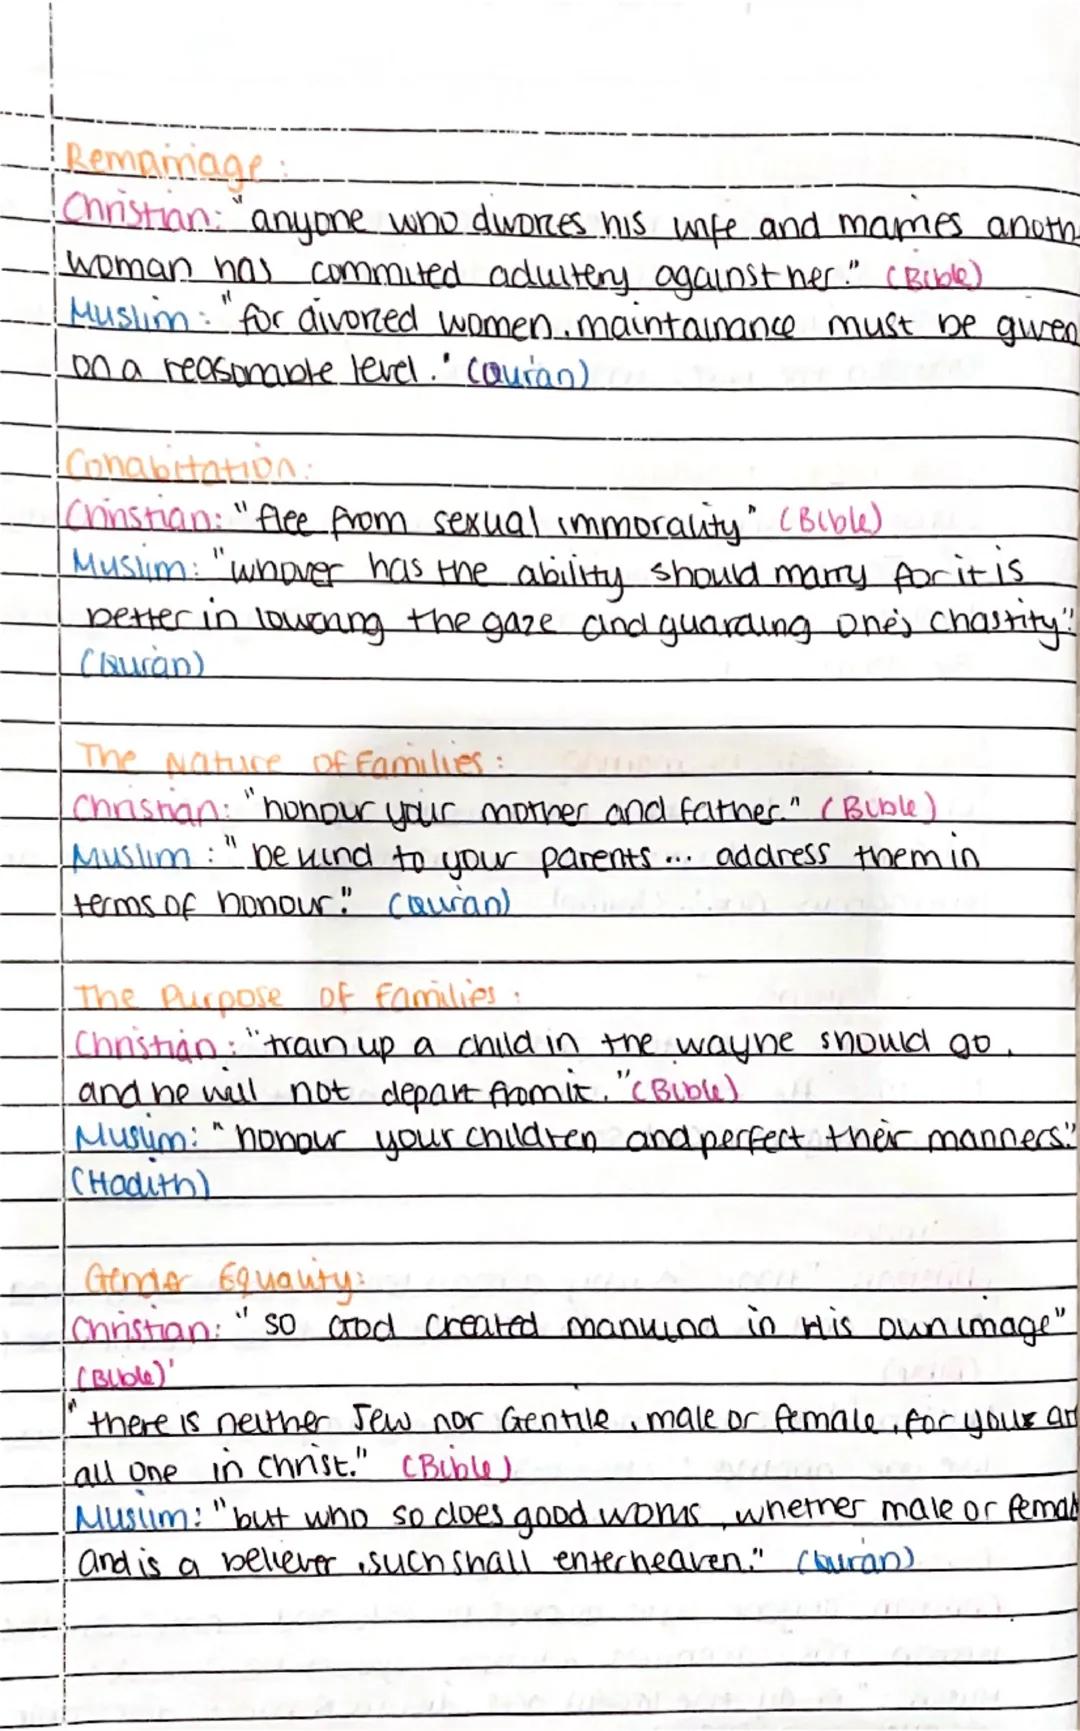 Remarriage:
Christian: "anyone who divorces his wife and marries anoth
woman has commited adultery against her." (Bible)
Muslim: "for divorced women, maintainance must be given
on a reasonable level." (Quran)
Cohabitation:
Christian: "flee from sexual immorality" (Bible)
Muslim: "whover has the ability should marry for it is
better in lowering the gaze and guarding one's chastity."
(Quran)
The Nature of Families:
Christian: "honour your mother and father." (Bible)
Muslim: "be kind to your parents... address them in
terms of honour." (Quran)
The Purpose of Families:
Christian: "train up a child in the way he should go,
and he will not depart from it." (Bible)
Muslim: "honour your children and perfect their manners."
(Hadith)
Gender Equality:
Christian: "so God created mankind in His own image"
(Bible)'
"there is neither Jew nor Gentile, male or female, for you
all one in Christ." (Bible)
Muslim: "but who so does good works, whether male or femal
and is a believer, such shall enter heaven." (Quran)